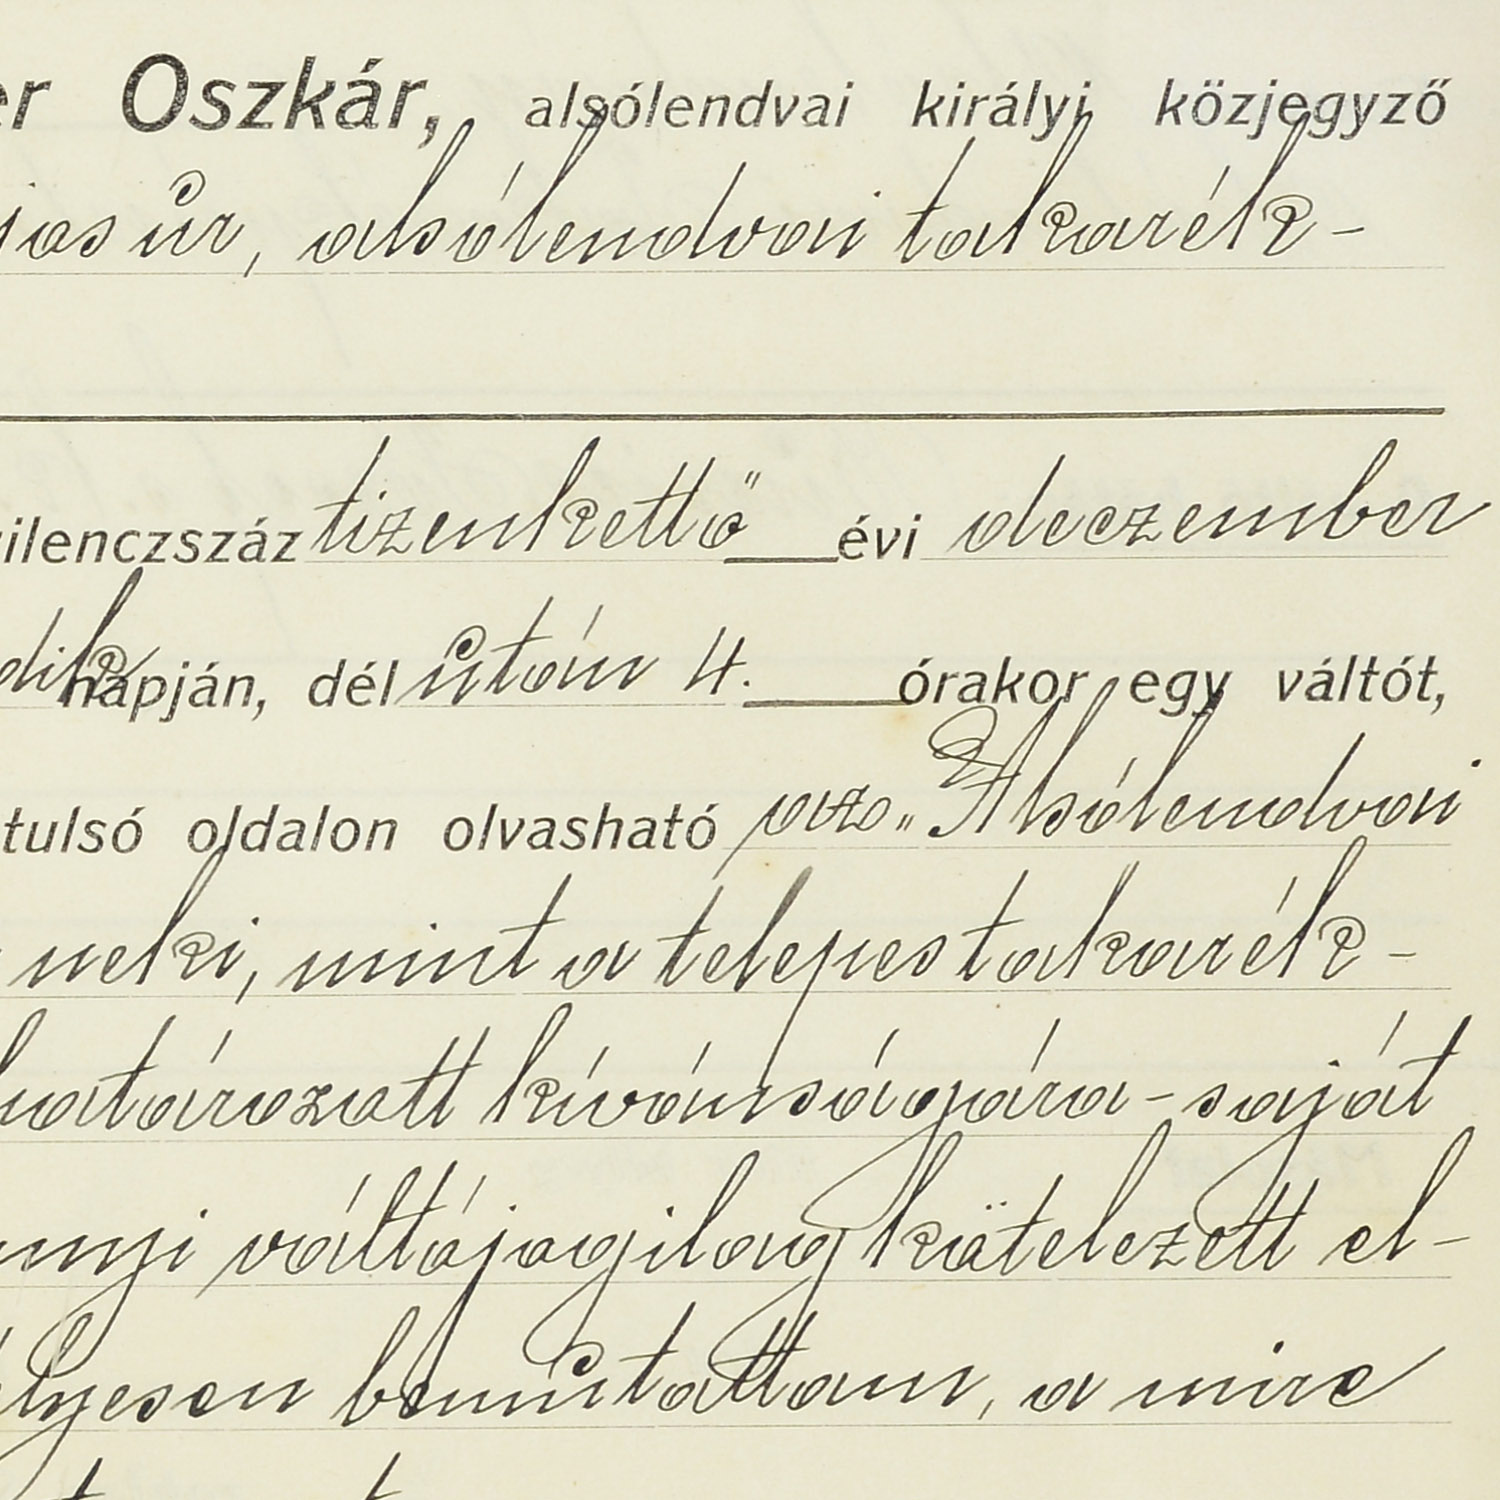 er Oszkár, alsólendvai királyi közjegyző
jas úr, alsólendvai takarék-
ilenczszáz tizenkettő évi deczember
dik napján, dél után 4. órakor egy váltót,
tulsó oldalon olvasható „Alsólendvai
neki, mint a telepes takarék-
határozott kívánságára - saját
nnyi váltójogilag kötelezett el-
élyesen bemutattam, a mire